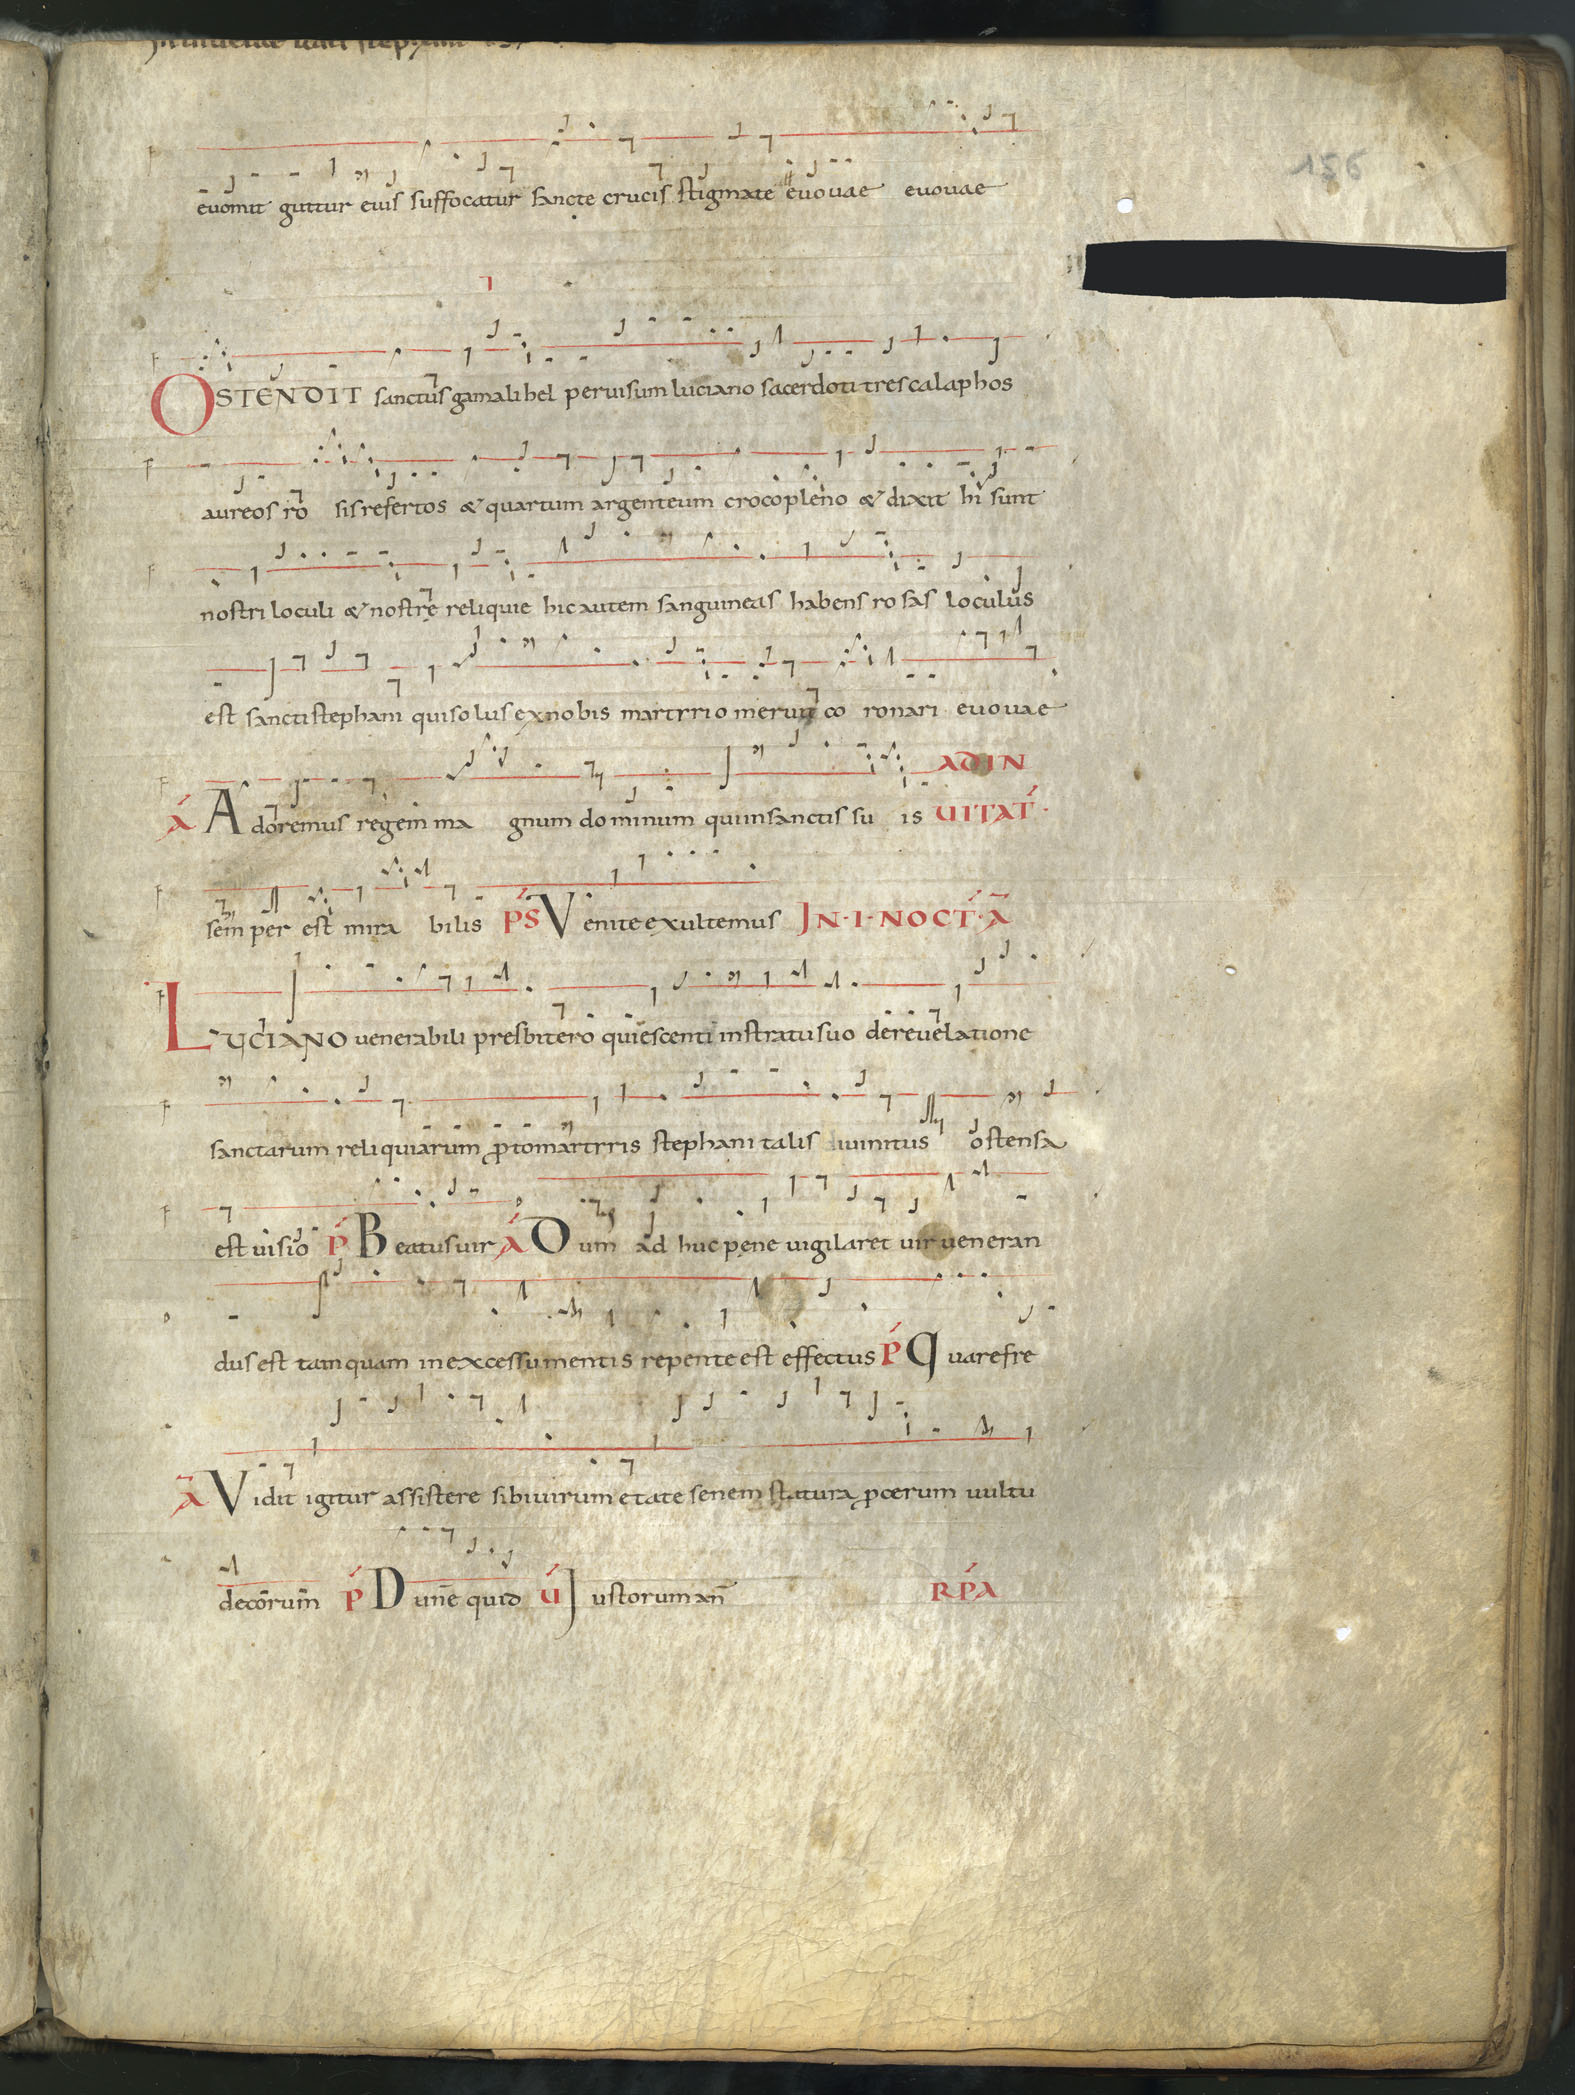 156
evomit guttur eius suffocatur sancte crucis stigmate evovae evovae
OSTENDIT sanctus gamalihel pervisum luciano sacerdoti tres calaphos
aureos ro sis refertos & quartum argenteum croco pleno & dixit hi sunt
nostri loculi & nostrę reliquie hic autem sanguineas habens ro sas loculus
est sancti stephani qui solus ex nobis martyrio meruit co ronari evovae
ADIN
A Adoremus regem ma gnum dominum qui in sanctis su is VITAT·
semper est mira bilis PS Venite exultemus IN·I·NOCT·A
LUCIANO venerabili presbitero quiescenti in stratu suo de revelatione
sanctarum reliquiarum ꝓtomartyris stephani talis divinitus ostensa
est visio P Beatus vir A Dum ad huc pene vigilaret vir veneran
dus est tamquam in excessu mentis repente est effectus P Quare fre
A Vidit igitur assistere sibi virum etate senem statura ꝓcerum vultu
decorum P Dūne quid V Iustorum an̄ RPA